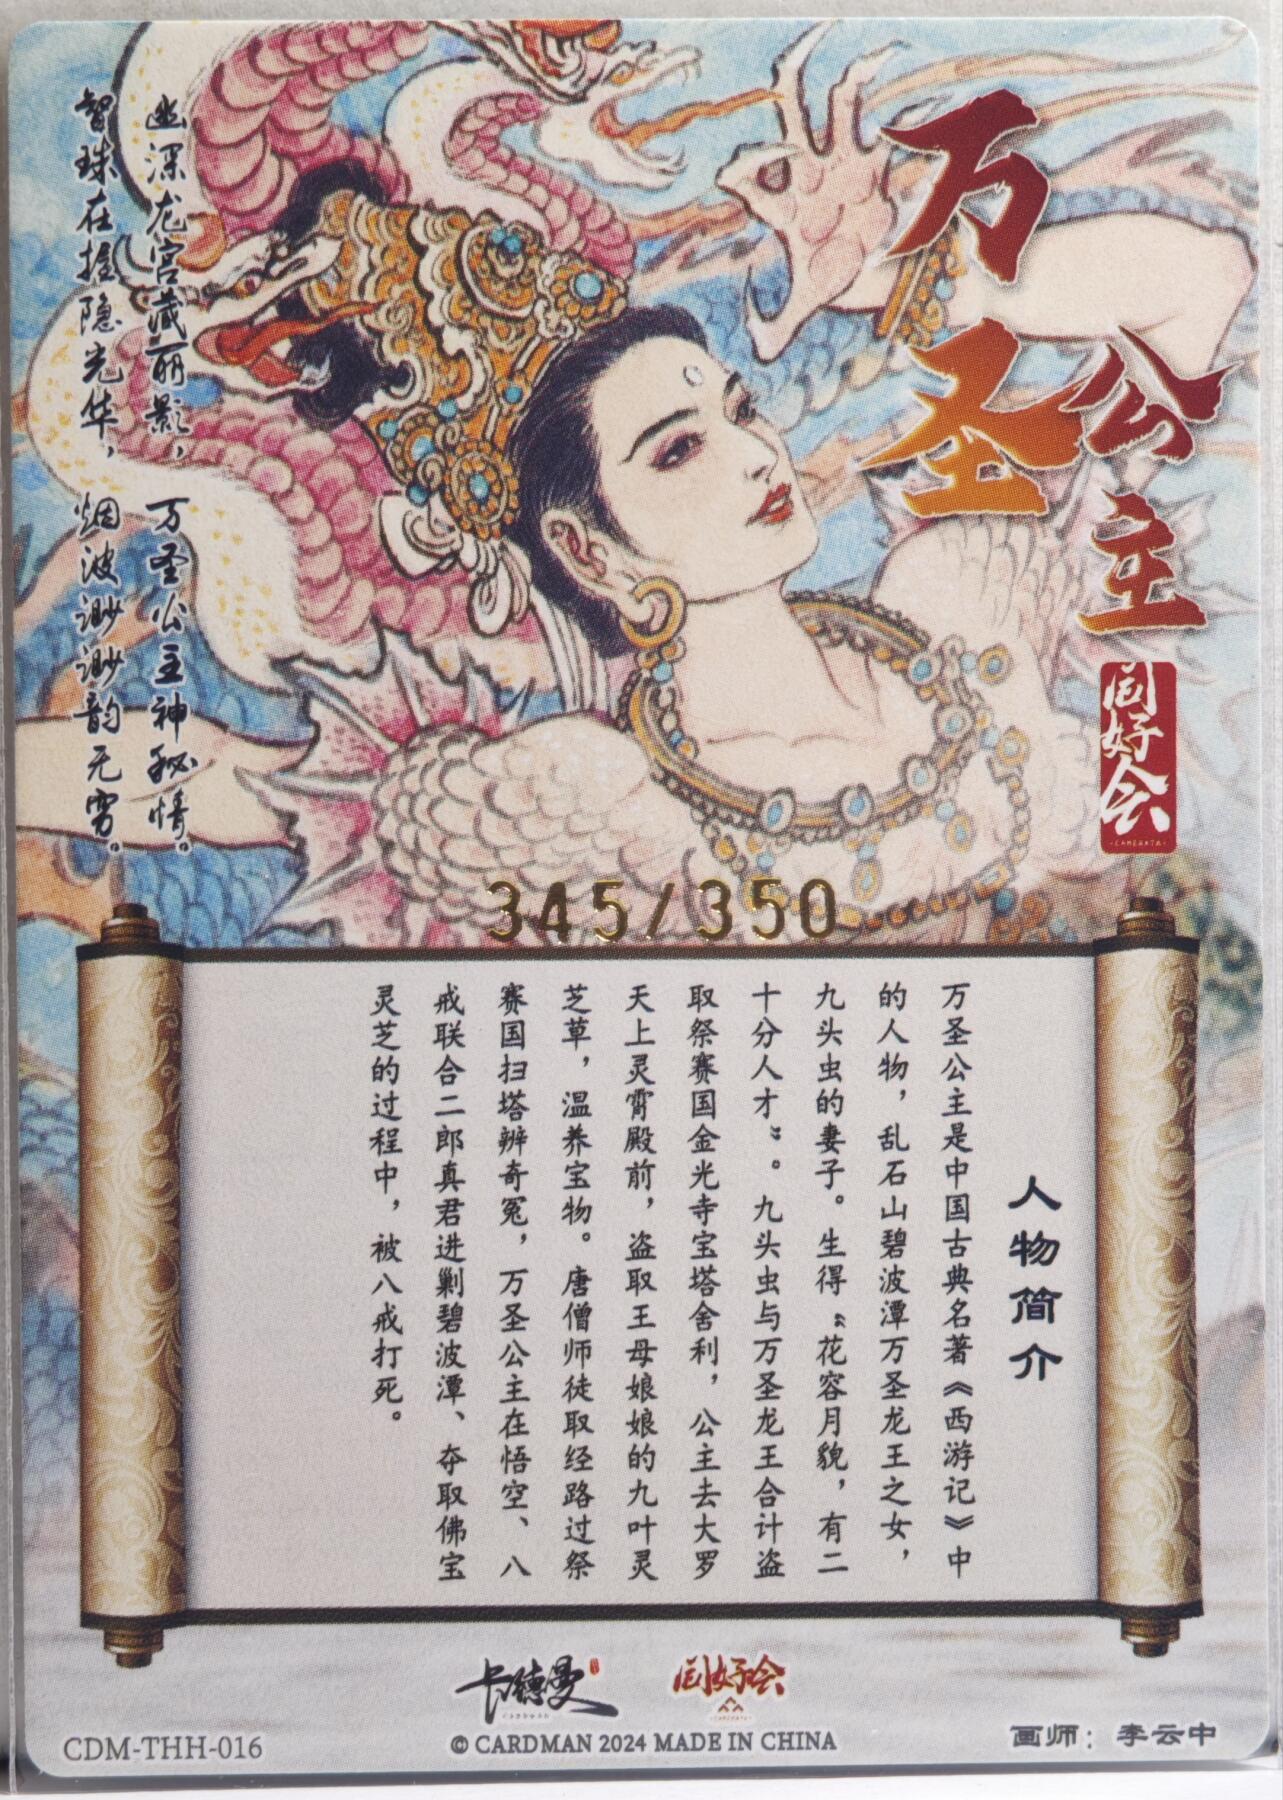 万圣
公主
同好会
幽深龙宫藏丽影，万圣公主神秘情。
智珠在握隐光华，烟波渺渺韵无穷。
345/350
人物简介
万圣公主是中国古典名著《西游记》中
的人物，乱石山碧波潭万圣龙王之女，
九头虫的妻子。生得“花容月貌，有二
十分人才”。九头虫与万圣龙王合计盗
取祭赛国金光寺宝塔舍利，公主去大罗
天上灵霄殿前，盗取王母娘娘的九叶灵
芝草，温养宝物。唐僧师徒取经路过祭
赛国扫塔辨奇冤，万圣公主在悟空、八
戒联合二郎真君进剿碧波潭、夺取佛宝
灵芝的过程中，被八戒打死。
卡德曼
同好会
CDM-THH-016
© CARDMAN 2024 MADE IN CHINA
画师：李云中